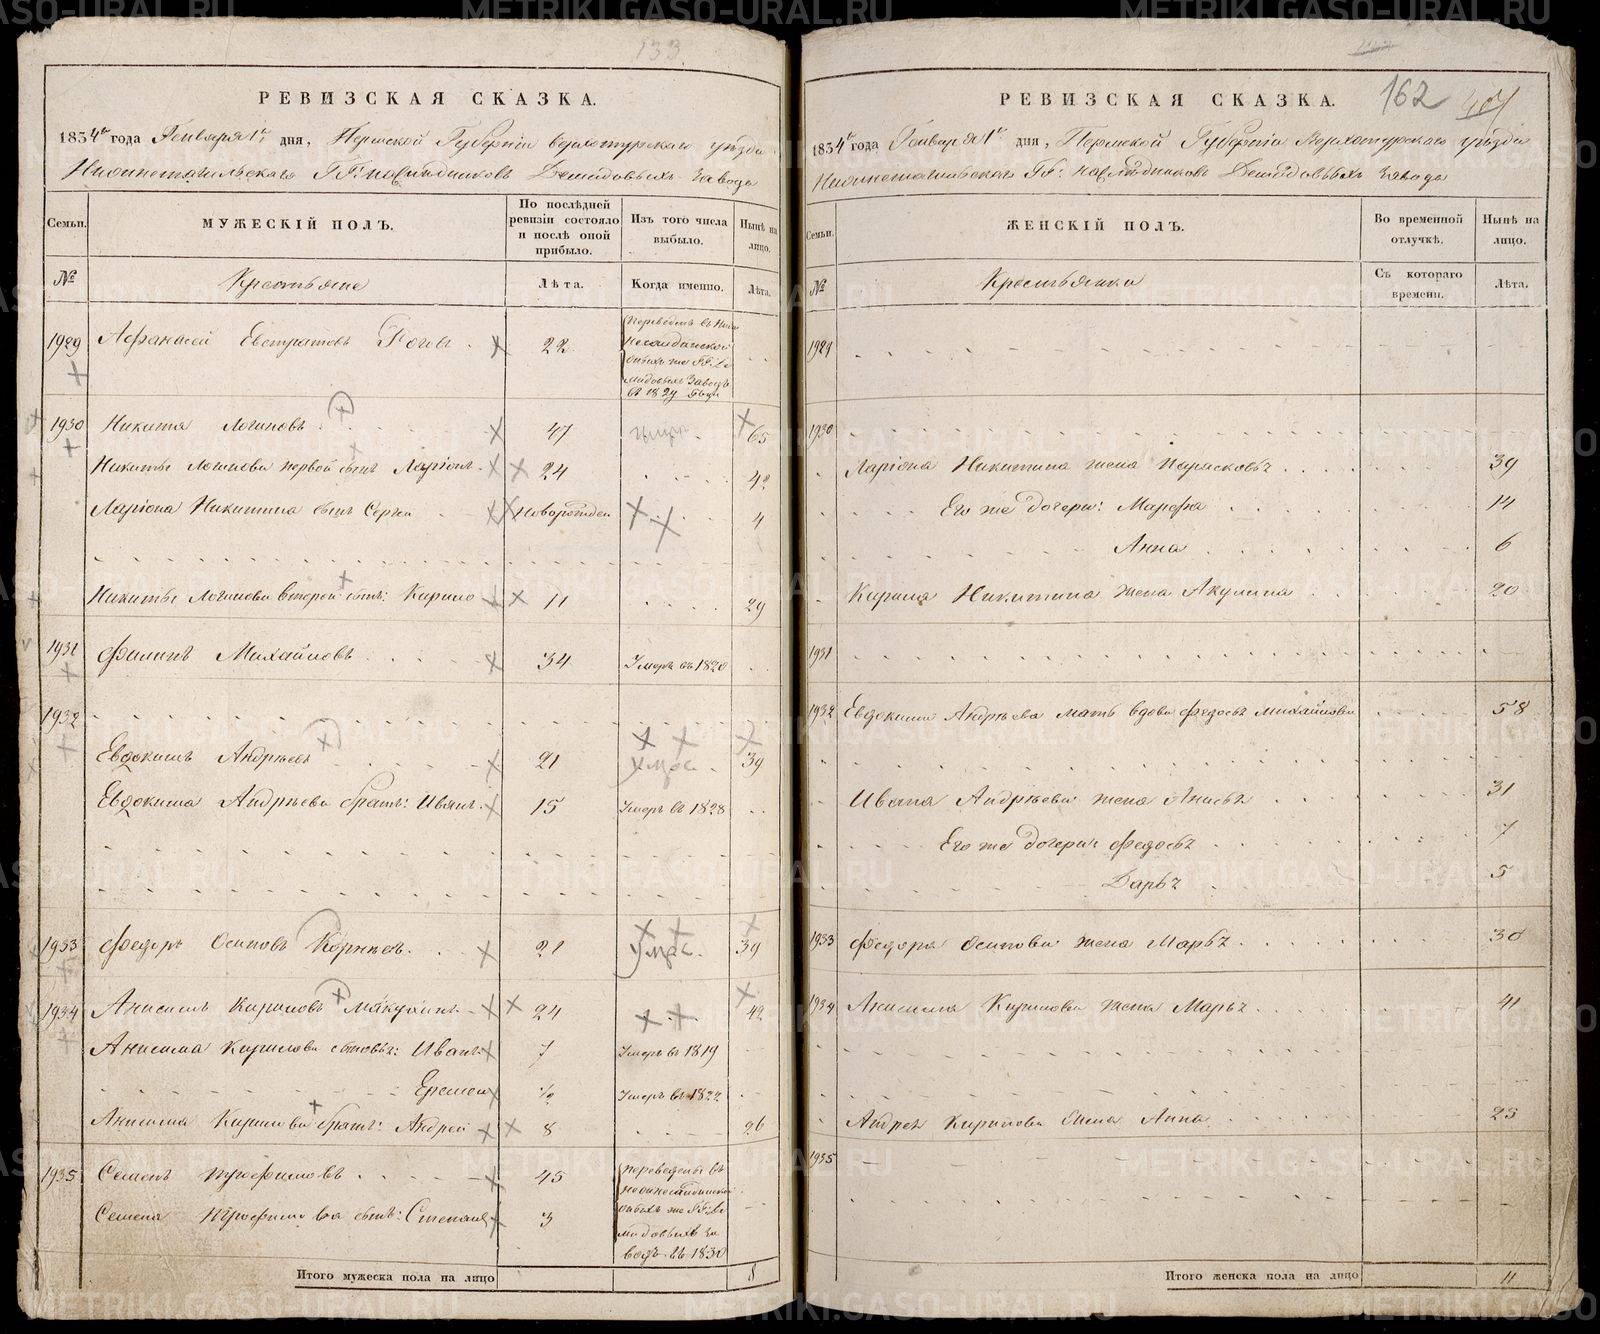 METRIKI.GASO-URAL.RU
133
РЕВИЗСКАЯ СКАЗКА.
1834го года Генваря 1го дня, Пермской Губерніи верхотурскаго уѣзда
Нижнетагильскаго ГГ: наслѣдниковъ Демидовыхъ завода
Семьи. МУЖЕСКІЙ ПОЛЪ. По послѣдней ревизіи состояло и послѣ оной прибыло. Изъ того числа выбыло. Нынѣ на лицо.
№ Крестьяне Лѣта. Когда именно. Лѣта.
1929 Афанасей Евстратовъ Роговъ 22 переведенъ въ Нижнесалдинской оныхъ же ГГ: Демидовыхъ заводъ въ 1829 году
1930 Никита Логиновъ 47 65
Никиты Логинова первой сынъ Ларіонъ 24 42
Ларіона Никитина сынъ Сергей Новорожден 4
Никиты Логинова второй сынъ: Кирило 11 29
1931 Филипъ Михайловъ 34 Умеръ въ 1820
1932
Евдокимъ Андреевъ 21 умре. 39
Евдокима Андреева братъ: Иванъ 15 Умеръ въ 1828
1933 Федоръ Осиповъ Корневъ 21 умре. 39
1934 Анисимъ Кириловъ Мякухинъ 24 42
Анисима Кирилова сыновья: Иванъ 7 Умеръ въ 1819
Еремей 1/2 Умеръ въ 1822
Анисима Кирилова братъ: Андрей 8 26
1935 Семенъ трофимовъ 45 переведены въ нижнесалдинской оныхъ же ГГ: Демидовыхъ заводъ въ 1830
Семена трофимова сынъ: Степанъ 3
Итого мужеска пола на лицо 8
162
РЕВИЗСКАЯ СКАЗКА.
1834го года Генваря 1го дня, Пермской Губерніи Верхотурскаго уѣзда
Нижнетагильскаго ГГ: наслѣдниковъ Демидовыхъ завода
Семьи. ЖЕНСКІЙ ПОЛЪ. Во временной отлучкѣ. Нынѣ на лицо.
№ Крестьянки Съ котораго времени. Лѣта.
1929
1930
Ларіона Никитина жена Парасковья 39
Его же дочери: Марфа 14
Анна 6
Кирила Никитина жена Акулина 20
1931
1932 Евдокима Андреева мать вдова Федосья Михайлова 58
Ивана Андреева жена Анисья 31
Его же дочери: Федосья 7
Дарья 5
1933 Федора Осипова жена Марья 30
1934 Анисима Кирилова жена Марья 41
Андрея Кирилова жена Анна 25
1935
Итого женска пола на лицо 11